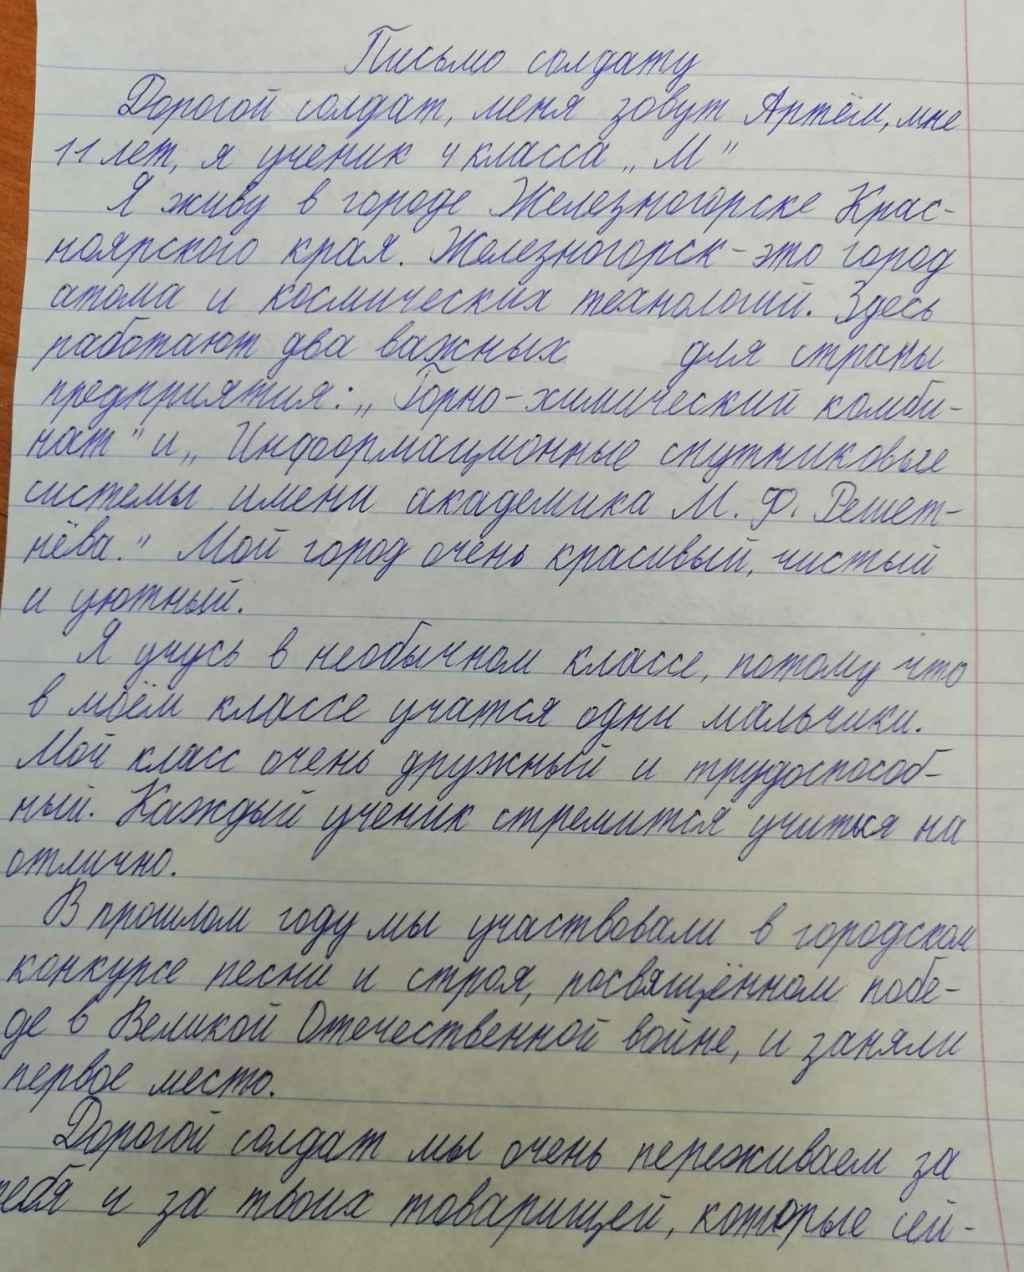 Письмо солдату
Дорогой солдат, меня зовут Артём, мне
11 лет, я ученик 4 класса „М"
Я живу в городе Железногорске Крас-
ноярского края. Железногорск - это город
атома и космических технологий. Здесь
работают два важных для страны
предприятия: „Горно-химический комби-
нат" и „Информационные спутниковые
системы имени академика М. Ф. Решет-
нёва." Мой город очень красивый, чистый
и уютный.
Я учусь в необычном классе, потому что
в моём классе учатся одни мальчики.
Мой класс очень дружный и трудоспособ-
ный. Каждый ученик стремится учиться на
отлично.
В прошлом году мы участвовали в городском
конкурсе песни и строя, посвящённом побе-
де в Великой Отечественной войне, и заняли
первое место.
Дорогой солдат мы очень переживаем за
тебя и за твоих товарищей, которые сей-